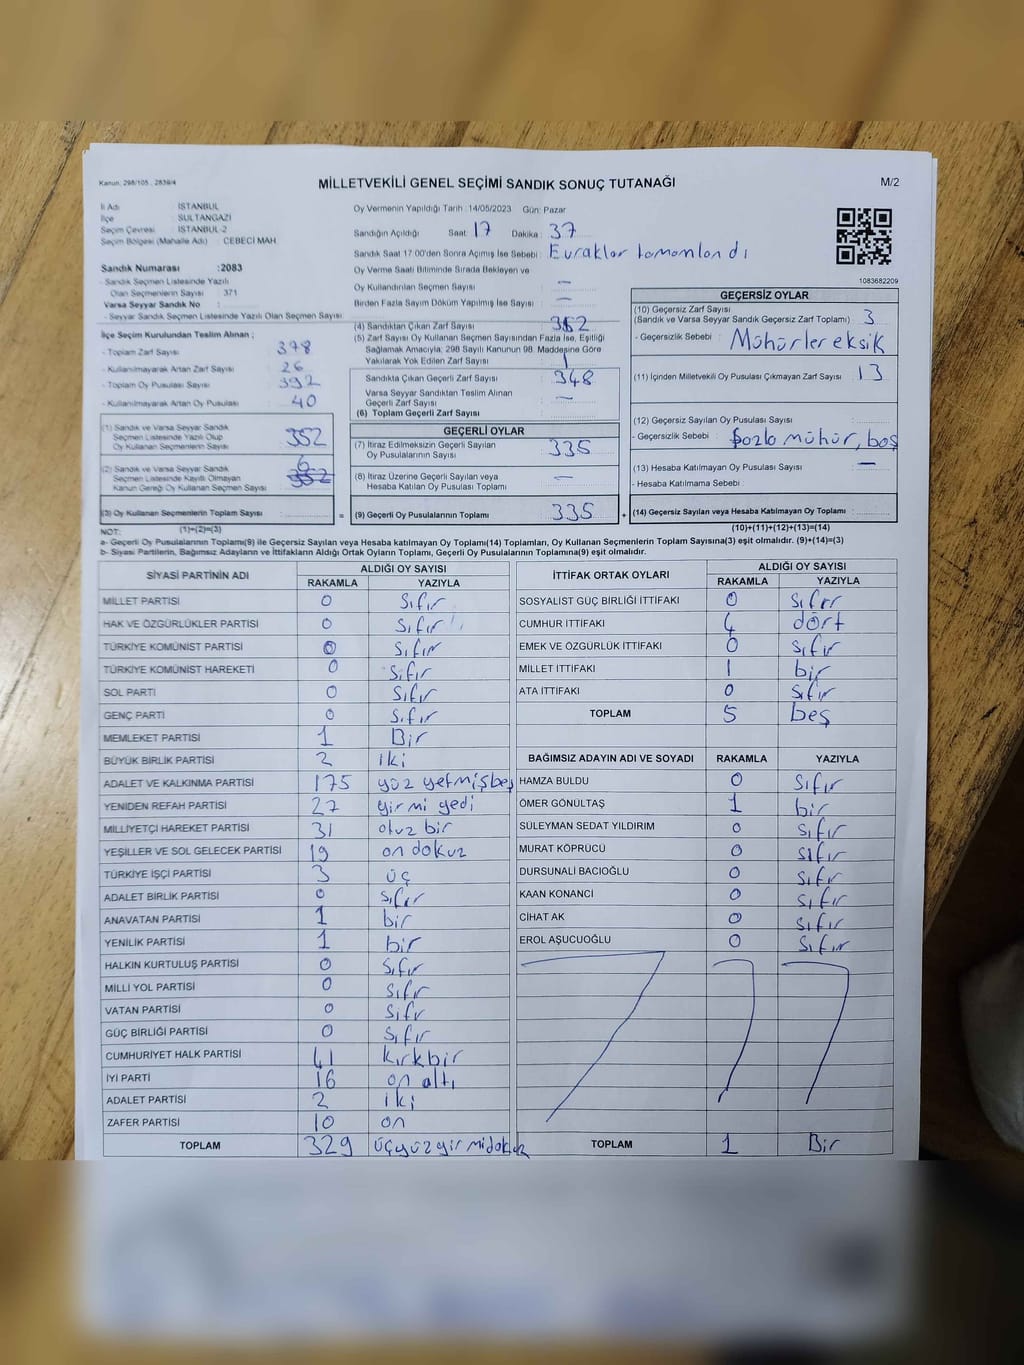 Kanun, 298/105 , 2839/4
MİLLETVEKİLİ GENEL SEÇİMİ SANDIK SONUÇ TUTANAĞI
M/2
İl Adı : İSTANBUL
İlçe : SULTANGAZİ
Seçim Çevresi : İSTANBUL-2
Seçim Bölgesi (Mahalle Adı) : CEBECİ MAH.
Sandık Numarası :2083
- Sandık Seçmen Listesinde Yazılı
Olan Seçmenlerin Sayısı : 371
Varsa Seyyar Sandık No :
- Seyyar Sandık Seçmen Listesinde Yazılı Olan Seçmen Sayısı :
Oy Vermenin Yapıldığı Tarih :14/05/2023 Gün: Pazar
Sandığın Açıldığı Saat: 17 Dakika : 37
Sandık Saat 17:00'den Sonra Açılmış İse Sebebi : Evraklar tamamlandı
Oy Verme Saati Bitiminde Sırada Bekleyen ve
Oy Kullandırılan Seçmen Sayısı : —
Birden Fazla Sayım Döküm Yapılmış İse Sayısı : —
1083682209
İlçe Seçim Kurulundan Teslim Alınan ;
- Toplam Zarf Sayısı : 378
- Kullanılmayarak Artan Zarf Sayısı : 26
- Toplam Oy Pusulası Sayısı : 392
- Kullanılmayarak Artan Oy Pusulası : 40
(1) Sandık ve Varsa Seyyar Sandık
Seçmen Listesinde Yazılı Olup
Oy Kullanan Seçmenlerin Sayısı : 352
(2) Sandık ve Varsa Seyyar Sandık
Seçmen Listesinde Kayıtlı Olmayan
Kanun Gereği Oy Kullanan Seçmen Sayısı :
(3) Oy Kullanan Seçmenlerin Toplam Sayısı :
(4) Sandıktan Çıkan Zarf Sayısı : 352
(5) Zarf Sayısı Oy Kullanan Seçmen Sayısından Fazla İse, Eşitliği
Sağlamak Amacıyla; 298 Sayılı Kanunun 98. Maddesine Göre
Yakılarak Yok Edilen Zarf Sayısı : 1
Sandıkta Çıkan Geçerli Zarf Sayısı : 348
Varsa Seyyar Sandıktan Teslim Alınan
Geçerli Zarf Sayısı : —
(6) Toplam Geçerli Zarf Sayısı :
GEÇERLİ OYLAR
(7) İtiraz Edilmeksizin Geçerli Sayılan
Oy Pusulalarının Sayısı : 335
(8) İtiraz Üzerine Geçerli Sayılan veya
Hesaba Katılan Oy Pusulası Toplamı : —
= (9) Geçerli Oy Pusulalarının Toplamı : 335 +
GEÇERSİZ OYLAR
(10) Geçersiz Zarf Sayısı
(Sandık ve Varsa Seyyar Sandık Geçersiz Zarf Toplamı) : 3
- Geçersizlik Sebebi : Mühürler eksik
(11) İçinden Milletvekili Oy Pusulası Çıkmayan Zarf Sayısı : 13
(12) Geçersiz Sayılan Oy Pusulası Sayısı :
- Geçersizlik Sebebi : fazla mühür, boş
(13) Hesaba Katılmayan Oy Pusulası Sayısı : —
- Hesaba Katılmama Sebebi :
(14) Geçersiz Sayılan veya Hesaba Katılmayan Oy Toplamı :
NOT: (1)+(2)=(3) (10)+(11)+(12)+(13)=(14)
a- Geçerli Oy Pusulalarının Toplamı(9) ile Geçersiz Sayılan veya Hesaba katılmayan Oy Toplamı(14) Toplamları, Oy Kullanan Seçmenlerin Toplam Sayısına(3) eşit olmalıdır. (9)+(14)=(3)
b- Siyasi Partilerin, Bağımsız Adayların ve İttifakların Aldığı Ortak Oyların Toplamı, Geçerli Oy Pusulalarının Toplamına(9) eşit olmalıdır.
SİYASİ PARTİNİN ADI ALDIĞI OY SAYISI
RAKAMLA YAZIYLA
MİLLET PARTİSİ 0 Sıfır
HAK VE ÖZGÜRLÜKLER PARTİSİ 0 Sıfır
TÜRKİYE KOMÜNİST PARTİSİ 0 Sıfır
TÜRKİYE KOMÜNİST HAREKETİ 0 Sıfır
SOL PARTİ 0 Sıfır
GENÇ PARTİ 0 Sıfır
MEMLEKET PARTİSİ 1 Bir
BÜYÜK BİRLİK PARTİSİ 2 iki
ADALET VE KALKINMA PARTİSİ 175 yüz yetmişbeş
YENİDEN REFAH PARTİSİ 27 yirmi yedi
MİLLİYETÇİ HAREKET PARTİSİ 31 otuz bir
YEŞİLLER VE SOL GELECEK PARTİSİ 19 on dokuz
TÜRKİYE İŞÇİ PARTİSİ 3 üç
ADALET BİRLİK PARTİSİ 0 sıfır
ANAVATAN PARTİSİ 1 bir
YENİLİK PARTİSİ 1 bir
HALKIN KURTULUŞ PARTİSİ 0 Sıfır
MİLLİ YOL PARTİSİ 0 Sıfır
VATAN PARTİSİ 0 Sıfır
GÜÇ BİRLİĞİ PARTİSİ 0 Sıfır
CUMHURİYET HALK PARTİSİ 41 kırkbir
İYİ PARTİ 16 on altı
ADALET PARTİSİ 2 iki
ZAFER PARTİSİ 10 on
TOPLAM 329 üçyüzyirmidokuz
İTTİFAK ORTAK OYLARI ALDIĞI OY SAYISI
RAKAMLA YAZIYLA
SOSYALİST GÜÇ BİRLİĞİ İTTİFAKI 0 Sıfır
CUMHUR İTTİFAKI 4 dört
EMEK VE ÖZGÜRLÜK İTTİFAKI 0 Sıfır
MİLLET İTTİFAKI 1 bir
ATA İTTİFAKI 0 Sıfır
TOPLAM 5 beş
BAĞIMSIZ ADAYIN ADI VE SOYADI RAKAMLA YAZIYLA
HAMZA BULDU 0 Sıfır
ÖMER GÖNÜLTAŞ 1 bir
SÜLEYMAN SEDAT YILDIRIM 0 Sıfır
MURAT KÖPRÜCÜ 0 Sıfır
DURSUNALİ BACIOĞLU 0 Sıfır
KAAN KONANCI 0 Sıfır
CİHAT AK 0 Sıfır
EROL AŞUCUOĞLU 0 Sıfır
TOPLAM 1 Bir